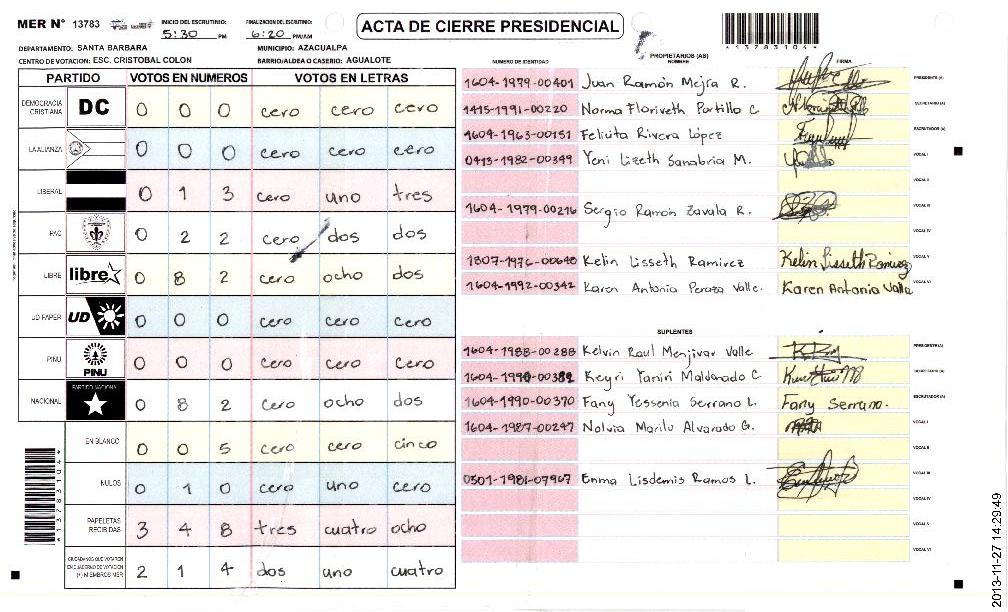 MER N° 13783
INICIO DEL ESCRUTINIO: 5:30 PM
FINALIZACION DEL ESCRUTINIO: 6:20 PM/AM
ACTA DE CIERRE PRESIDENCIAL
*13783104*
DEPARTAMENTO: SANTA BARBARA
MUNICIPIO: AZACUALPA
CENTRO DE VOTACION: ESC. CRISTOBAL COLON
BARRIO/ALDEA O CASERIO: AGUALOTE
PARTIDO VOTOS EN NUMEROS VOTOS EN LETRAS
DEMOCRACIA CRISTIANA DC 0 0 0 cero cero cero
LA ALIANZA 0 0 0 cero cero cero
LIBERAL 0 1 3 cero uno tres
PAC 0 2 2 cero dos dos
LIBRE libre 0 8 2 cero ocho dos
UD FAPER UD 0 0 0 cero cero cero
PINU PINU 0 0 0 cero cero cero
NACIONAL PARTIDO NACIONAL 0 8 2 cero ocho dos
EN BLANCO 0 0 5 cero cero cinco
NULOS 0 1 0 cero uno cero
PAPELETAS RECIBIDAS 3 4 8 tres cuatro ocho
CIUDADANOS QUE VOTARON EN CUADERNO DE VOTACION (+) MIEMBROS MER 2 1 4 dos uno cuatro
*13783104*
PROPIETARIOS (AS)
NUMERO DE IDENTIDAD NOMBRE FIRMA
1604-1979-00401 Juan Ramón Mejra R. PRESIDENTE (A)
1415-1991-00220 Norma Floriveth Portillo C SECRETARIO (A)
1604-1963-00151 Felicita Rivera López ESCRUTADOR (A)
0413-1982-00349 Yeni Lizeth Sanabria M. VOCAL I
VOCAL II
1604-1979-00216 Sergio Ramón Zavala R. VOCAL III
VOCAL IV
1807-1976-00640 Kelin Lisseth Ramirez Kelin Lisseth Ramirez VOCAL V
1604-1992-00342 Karen Antonia Peraza Valle. Karen Antonia Valle VOCAL VI
SUPLENTES
1604-1988-00288 Kelvin Raul Menjivar Valle PRESIDENTE (A)
1604-1990-00382 Keyri Yaniri Maldonado C. SECRETARIO (A)
1604-1990-00370 Fany Yessenia Serrano L. Fany Serrano. ESCRUTADOR (A)
1604-1987-00247 Nolvia Marilu Alvarado G. VOCAL I
VOCAL II
0501-1981-07967 Enma Lisdemis Ramos L. VOCAL III
VOCAL IV
VOCAL V
VOCAL VI
2013-11-27 14:29:49